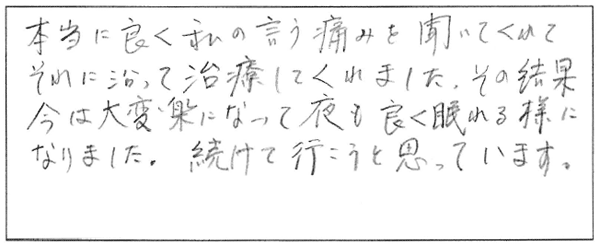 本当に良く私の言う痛みを聞いてくれて
それに沿って治療してくれました。その結果
今は大変楽になって夜も良く眠れる様に
なりました。続けて行こうと思っています。